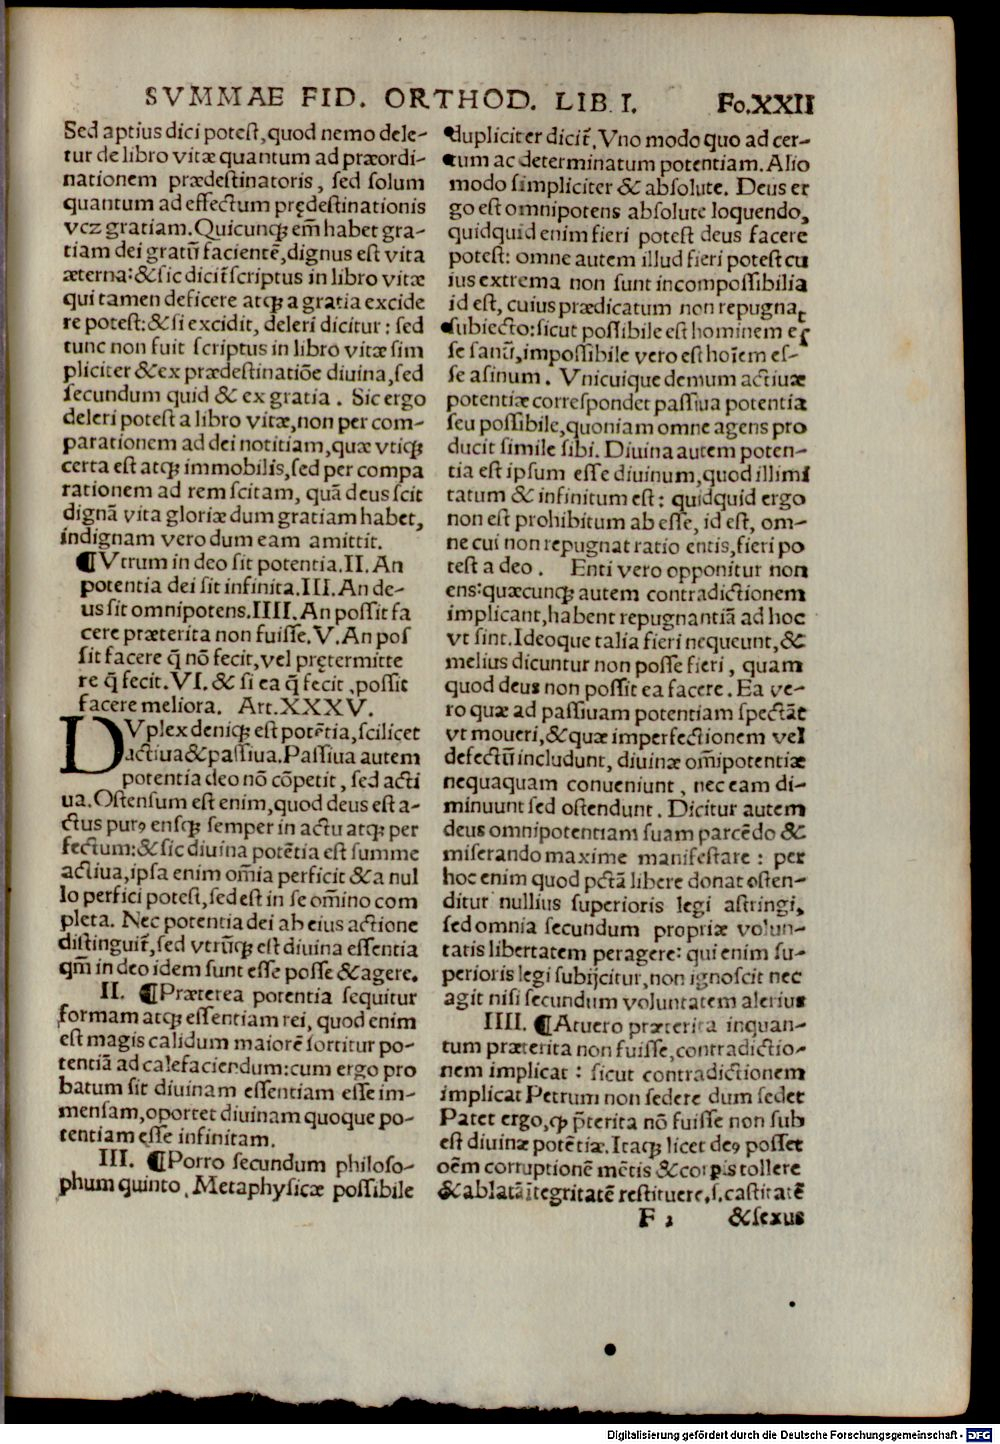 SVMMAE FID. ORTHOD. LIB. I. Fo.XXII
Sed aptius dici potest, quod nemo dele-
tur de libro vitæ quantum ad præordi-
nationem prædestinatoris, sed solum
quantum ad effectum prędestinationis
vcz gratiam. Quicunqꝫ em̃ habet gra-
tiam dei gratũ facientẽ, dignus est vita
æterna: & sic dicit̃ scriptus in libro vitæ
qui tamen deficere atqꝫ a gratia excide
re potest: & si excidit, deleri dicitur: sed
tunc non fuit scriptus in libro vitæ sim
pliciter & ex prædestinatiõe diuina, sed
secundum quid & ex gratia. Sic ergo
deleri potest a libro vitæ, non per com-
parationem ad dei notitiam, quæ vtiqꝫ
certa est atqꝫ immobilis, sed per compa
rationem ad rem scitam, quã deus scit
dignã vita gloriæ dum gratiam habet,
indignam vero dum eam amittit.
¶Vtrum in deo sit potentia. II. An
potentia dei sit infinita. III. An de-
us sit omnipotens. IIII. An possit fa
cere præterita non fuisse. V. An pos
sit facere q̃ nõ fecit, vel prętermitte
re q̃ fecit. VI. & si ea q̃ fecit, possit
facere meliora. Art. XXXV.
DVplex deniqꝫ est potẽtia, scilicet
actiua & passiua. Passiua autem
potentia deo nõ cõpetit, sed acti
ua. Ostensum est enim, quod deus est a-
ctus purꝰ ensqꝫ semper in actu atqꝫ per
fectum: & sic diuina potẽtia est summe
actiua, ipsa enim om̃ia perficit & a nul
lo perfici potest, sed est in se om̃ino com
pleta. Nec potentia dei ab eius actione
distinguit̃, sed vtrũqꝫ est diuina essentia
qm̃ in deo idem sunt esse posse & agere.
II. ¶Præterea potentia sequitur
formam atqꝫ essentiam rei, quod enim
est magis calidum maiorẽ sortitur po-
tentiã ad calefaciendum: cum ergo pro
batum sit diuinam essentiam esse im-
mensam, oportet diuinam quoque po-
tentiam esse infinitam.
III. ¶Porro secundum philoso-
phum quinto. Metaphysicæ possibile
dupliciter dicit̃. Vno modo quo ad cer-
tum ac determinatum potentiam. Alio
modo simpliciter & absolute. Deus er
go est omnipotens absolute loquendo,
quidquid enim fieri potest deus facere
potest: omne autem illud fieri potest cu
ius extrema non sunt incompossibilia
id est, cuius prædicatum non repugnat
subiecto: sicut possibile est hominem es
se sanũ, impossibile vero est hoĩem es-
se asinum. Vnicuique demum actiuæ
potentiæ correspondet passiua potentia
seu possibile, quoniam omne agens pro
ducit simile sibi. Diuina autem poten-
tia est ipsum esse diuinum, quod illimi
tatum & infinitum est: quidquid ergo
non est prohibitum ab esse, id est, om-
ne cui non repugnat ratio entis, fieri po
test a deo. Enti vero opponitur non
ens: quæcunqꝫ autem contradictionem
implicant, habent repugnantiã ad hoc
vt sint. Ideoque talia fieri nequeunt, &
melius dicuntur non posse fieri, quam
quod deus non possit ea facere. Ea ve-
ro quæ ad passiuam potentiam spectãt
vt moueri, & quæ imperfectionem vel
defectũ includunt, diuinæ om̃ipotentiæ
nequaquam conueniunt, nec eam di-
minuunt sed ostendunt. Dicitur autem
deus omnipotentiam suam parcẽdo &
miserando maxime manifestare: per
hoc enim quod pctã libere donat osten-
ditur nullius superioris legi astringi,
sed omnia secundum propriæ volun-
tatis libertatem peragere: qui enim su-
perioris legi subijcitur, non ignoscit nec
agit nisi secundum voluntatem alerius
IIII. ¶Atuero præterita inquan-
tum præterita non fuisse, contradictio-
nem implicat: sicut contradictionem
implicat Petrum non sedere dum sedet
Patet ergo, ꝙ p̃terita nõ fuisse non sub
est diuinæ potẽtiæ. Itaqꝫ licet deꝰ posset
oẽm corruptionẽ mẽtis & corpis tollere
& ablatã ĩtegritatẽ restituere, s. castitatẽ
F 2 & sexus
Digitalisierung gefördert durch die Deutsche Forschungsgemeinschaft - DFG